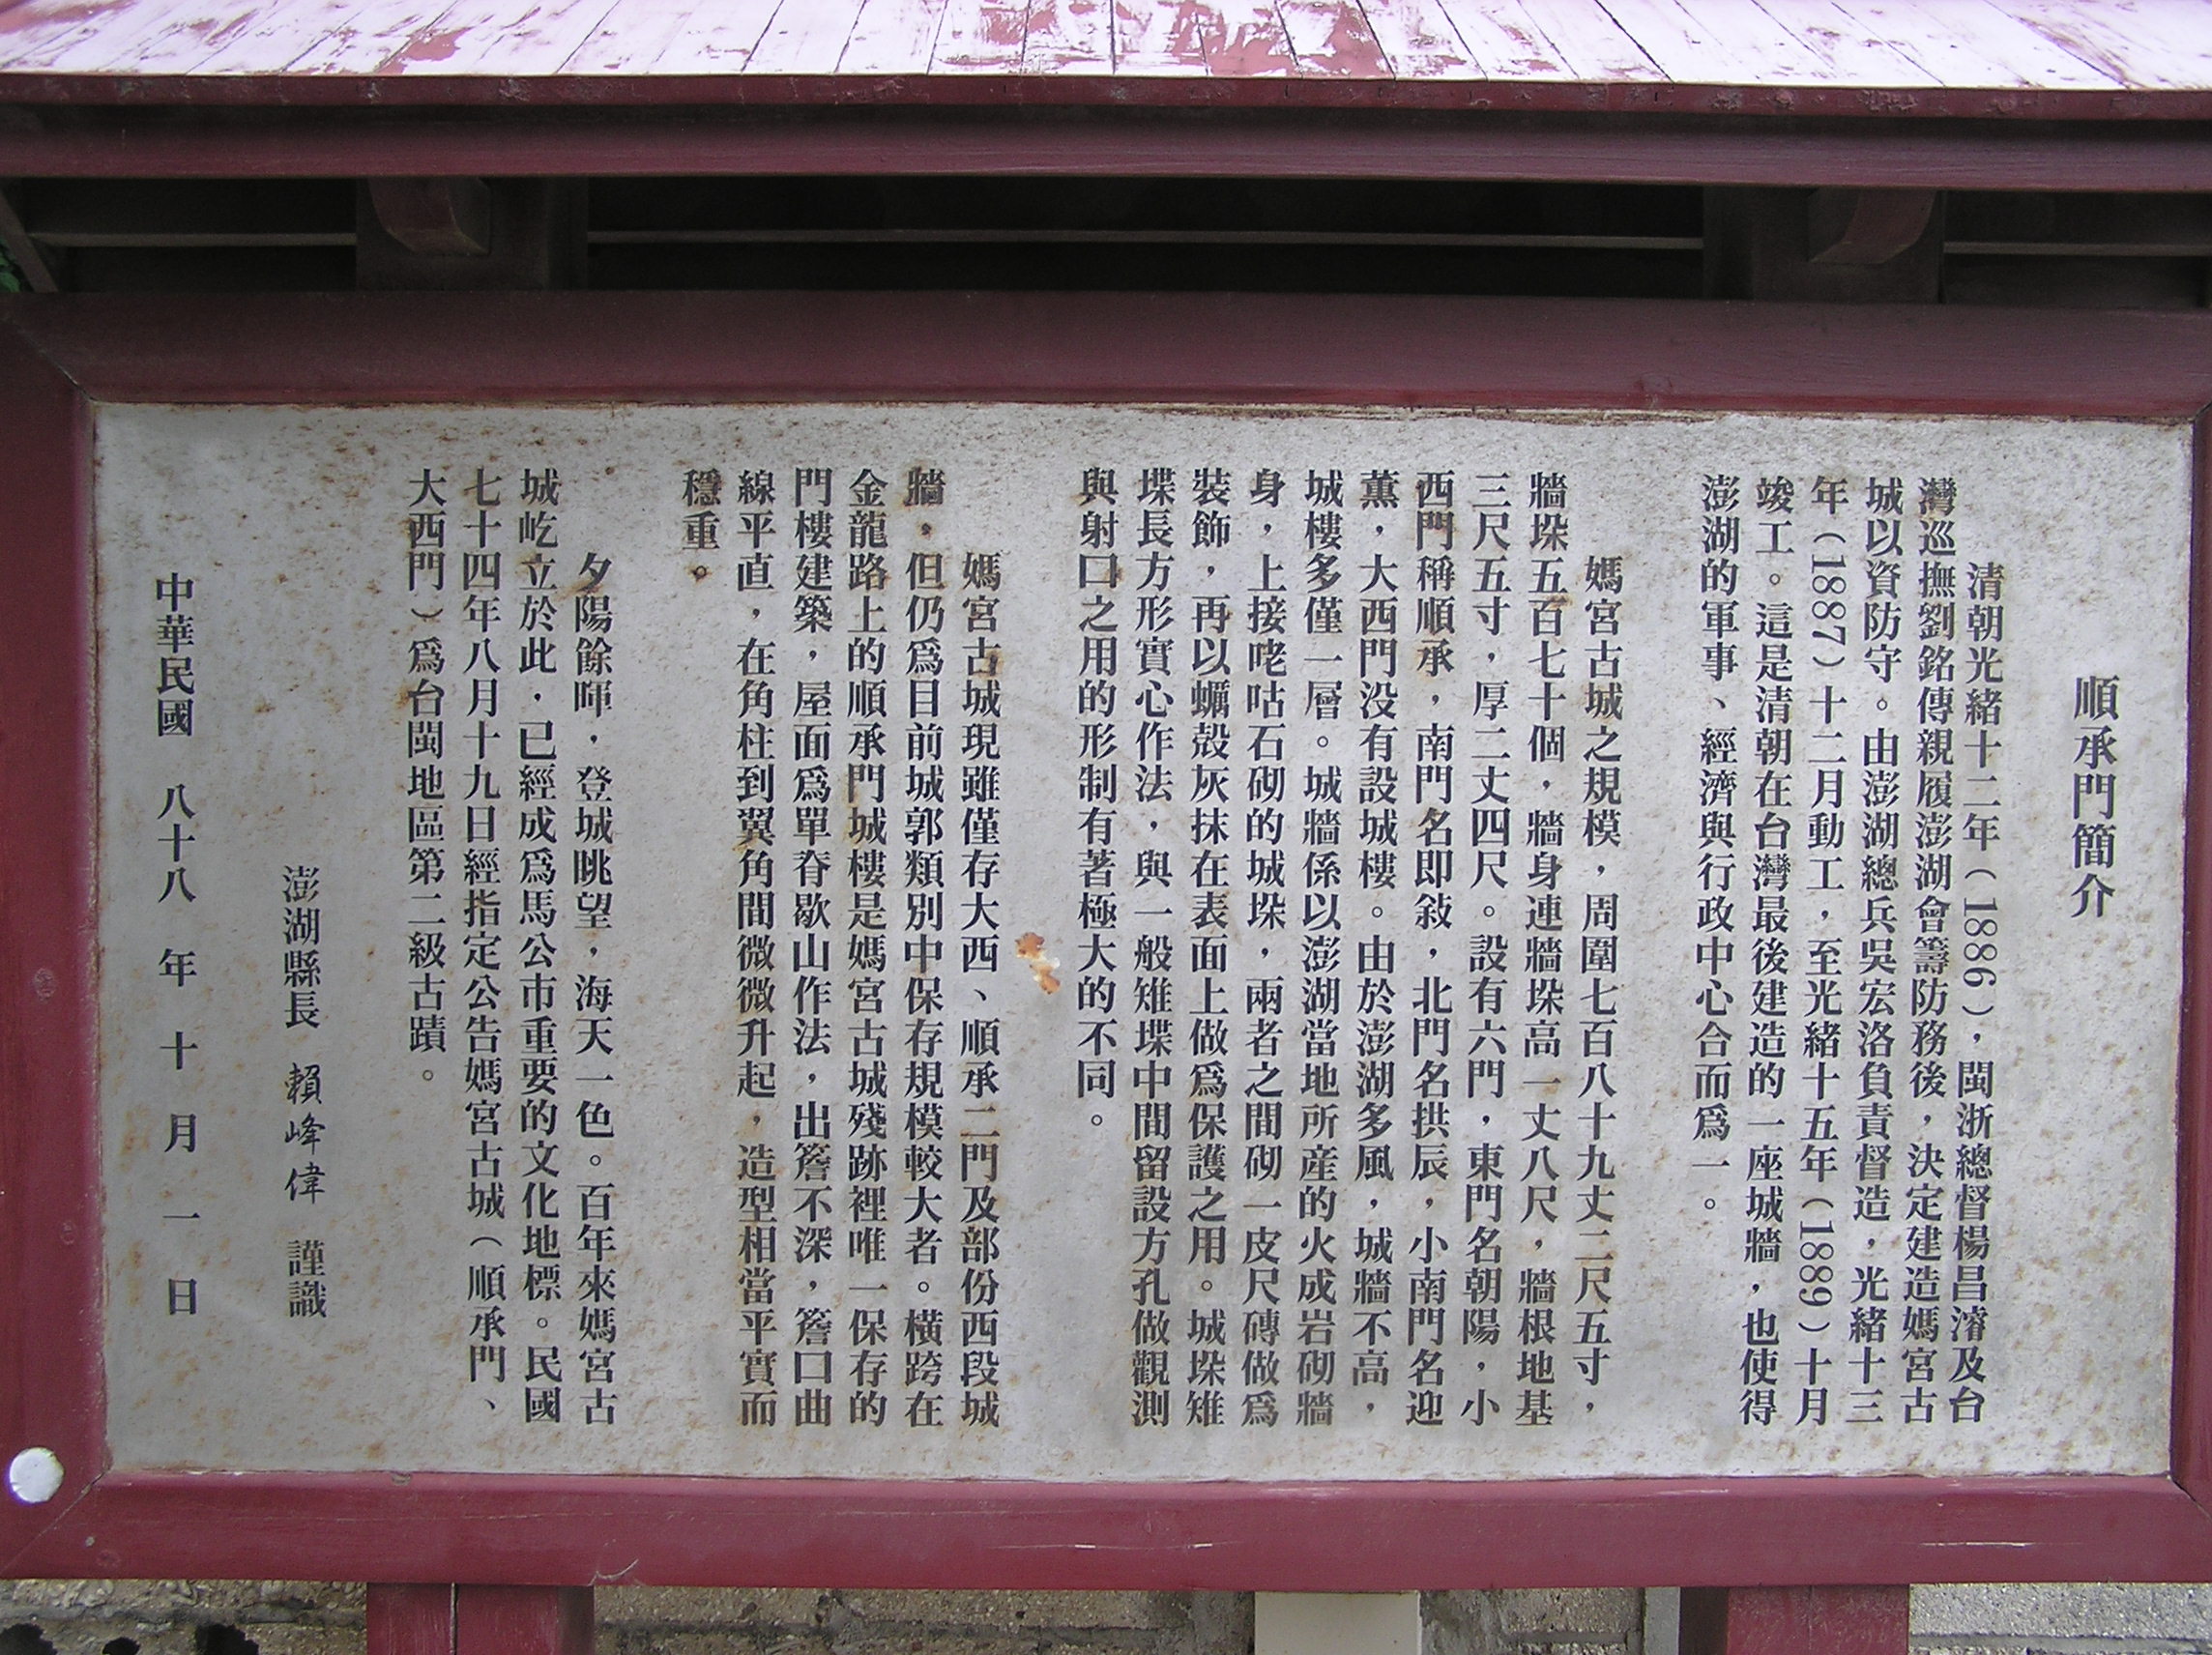 順承門簡介
清朝光緒十二年（1886），閩浙總督楊昌濬及台
灣巡撫劉銘傳親履澎湖會籌防務後，決定建造媽宮古
城以資防守。由澎湖總兵吳宏洛負責督造，光緒十三
年（1887）十二月動工，至光緒十五年（1889）十月
竣工。這是清朝在台灣最後建造的一座城牆，也使得
澎湖的軍事、經濟與行政中心合而為一。
媽宮古城之規模，周圍七百八十九丈二尺五寸，
牆垛五百七十個，牆身連牆垛高一丈八尺，牆根地基
三尺五寸，厚二丈四尺。設有六門，東門名朝陽，小
西門稱順承，南門名即敍，北門名拱辰，小南門名迎
薰，大西門没有設城樓。由於澎湖多風，城牆不高，
城樓多僅一層。城牆係以澎湖當地所産的火成岩砌牆
身，上接咾咕石砌的城垛，兩者之間砌一皮尺磚做為
裝飾，再以蠣殼灰抹在表面上做為保護之用。城垛雉
堞長方形實心作法，與一般雉堞中間留設方孔做觀測
與射口之用的形制有著極大的不同。
媽宮古城現雖僅存大西、順承二門及部份西段城
牆，但仍為目前城郭類別中保存規模較大者。橫跨在
金龍路上的順承門城樓是媽宮古城殘跡裡唯一保存的
門樓建築，屋面為單脊歇山作法，出簷不深，簷口曲
線平直，在角柱到翼角間微微升起，造型相當平實而
穩重。
夕陽餘暉，登城眺望，海天一色。百年來媽宮古
城屹立於此，已經成為馬公市重要的文化地標。民國
七十四年八月十九日經指定公告媽宮古城（順承門、
大西門）為台閩地區第二級古蹟。
澎湖縣長 賴峰偉 謹識
中華民國 八十八 年 十 月 一 日